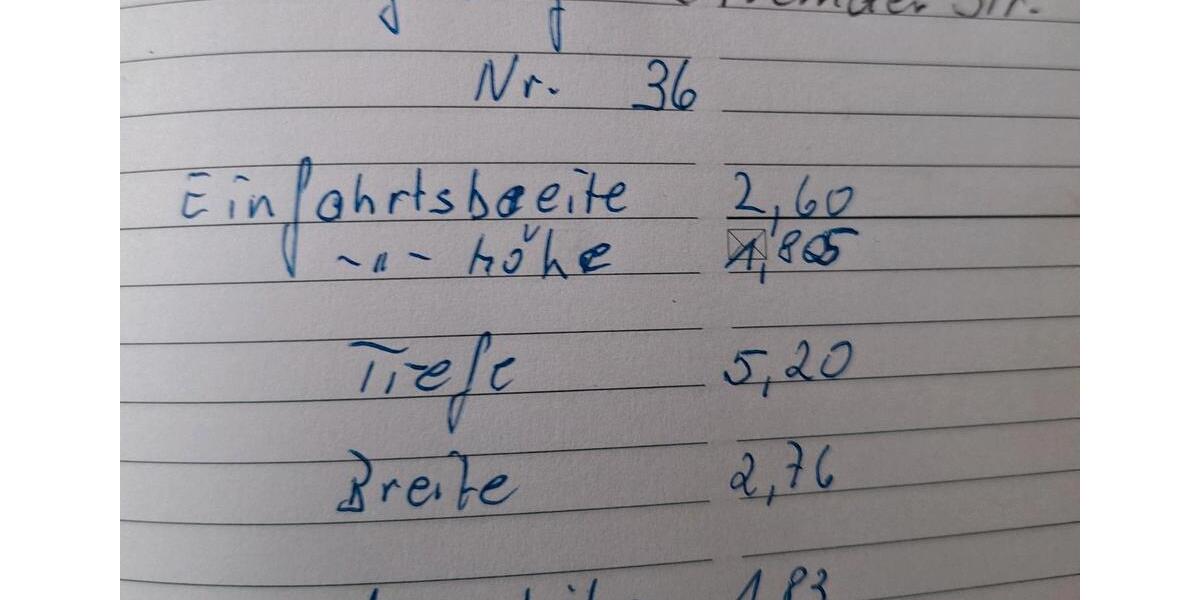 Str.
Nr. 36
Einfahrtsbreite 2,60
-"- höhe 1,805
Tiefe 5,20
Breite 2,76
1,83